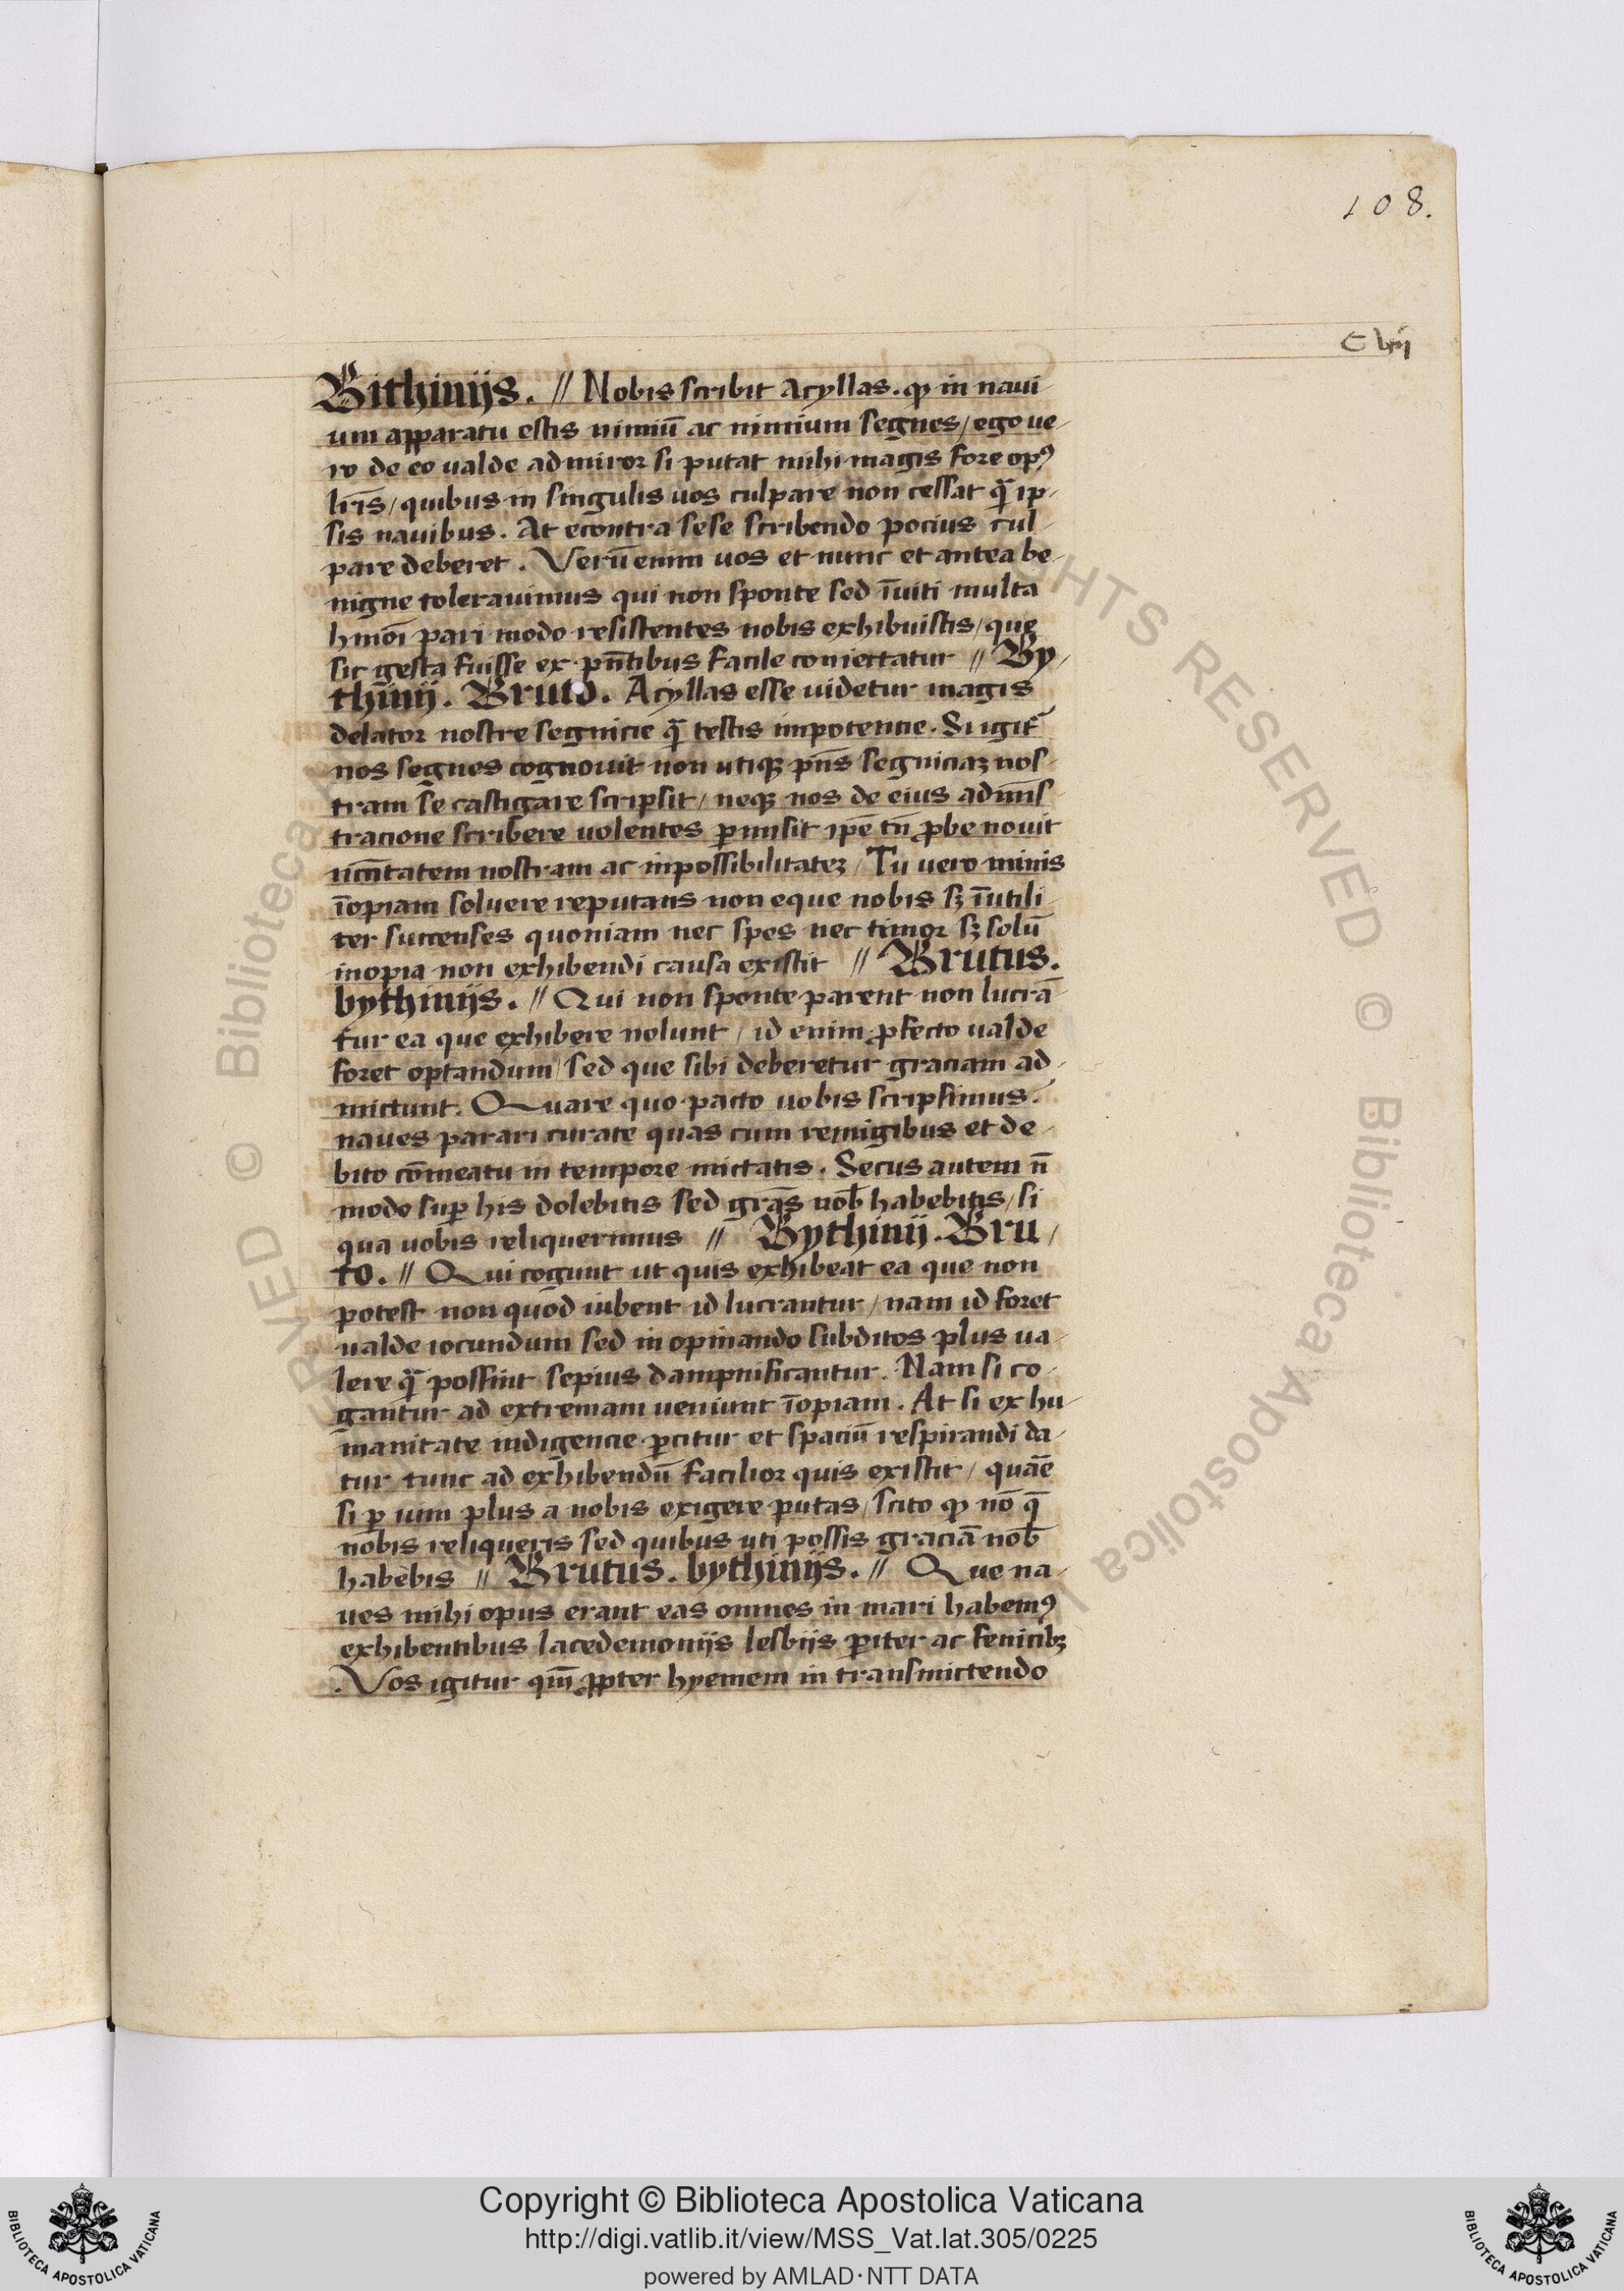 108.
C lvij
Bithinijs. // Nobis scribit Acyllas. ꝙ in naui-
um apparatu estis nimiū ac nimium segnes / ego ue-
ro de eo ualde admiror si putat mihi magis fore opꝰ
lr̄is / quibus in singulis uos culpare non cessat q̄ ip-
sis nauibus. At econtra sese scribendo pocius cul-
pare deberet. Verū enim uos et nunc et antea be-
nigne tolerauimus qui non sponte sed īuiti multa
hmōi pari modo resistentes nobis exhibuistis / que
sic gesta fuisse ex pn̄tibus facile coniectatur // By-
thinij. Bruto. Acyllas esse uidetur magis
delator nostre segnicie q̄ testis impotentie. Si igit᷑
nos segnes cognouit non utiqꝫ pn̄s segniciaꝫ nos-
tram se castigare scripsit / neqꝫ nos de eius admīs-
tracione scribere uolentes ꝑmisit ipē tn̄ ꝓbe nouit
ucn̄tatem nostram ac inpossibilitateꝫ / Tu uero minis
īopiam soluere reputans non eque nobis sꝫ īutili-
ter succenses quoniam nec spes nec timor sꝫ solū
inopia non exhibendi causa existit // Brutus.
bythinijs. // Qui non sponte parent non lucrā-
tur ea que exhibere nolunt / id enim ꝓfecto ualde
foret optandum / sed que sibi deberetur graciam ad-
mictunt. Quare quo pacto uobis scripsimus.
naues parari curate quas cum remigibus et de-
bito cōmeatu in tempore mictatis. Secus autem n̄
modo suꝑ his dolebitis sed gr̄as nob̄ habebitis / si
qua uobis reliquerimus // Bythinij. Bru-
to. // Qui cogunt ut quis exhibeat ea que non
potest non quod iubent id lucrantur / nam id foret
ualde iocundum sed in opinando subditos plus ua-
lere q̄ possint sepius dampnificantur. Nam si co-
gantur ad extremam ueniunt īopiam. At si ex hu-
manitate indigencie ꝑcitur et spaciū respirandi da-
tur tunc ad exhibendū facilior quis existit / quāe
si ꝑ uim plus a nobis exigere putas / scito ꝙ nō q̄
nobis reliqueris sed quibus uti possis graciā nob̄
habebis // Brutus. bythinijs. // Que na-
ues mihi opus erant eas omnes in mari habemꝰ
exhibentibus lacedemonijs lesbijs ꝑiter ac fenicibꝫ
. Vos igitur qm̄ ꝓpter hyemem in transmictendo
Copyright © Biblioteca Apostolica Vaticana
http://digi.vatlib.it/view/MSS_Vat.lat.305/0225
powered by AMLAD · NTT DATA
BIBLIOTECA APOSTOLICA VATICANA
BIBLIOTECA APOSTOLICA VATICANA